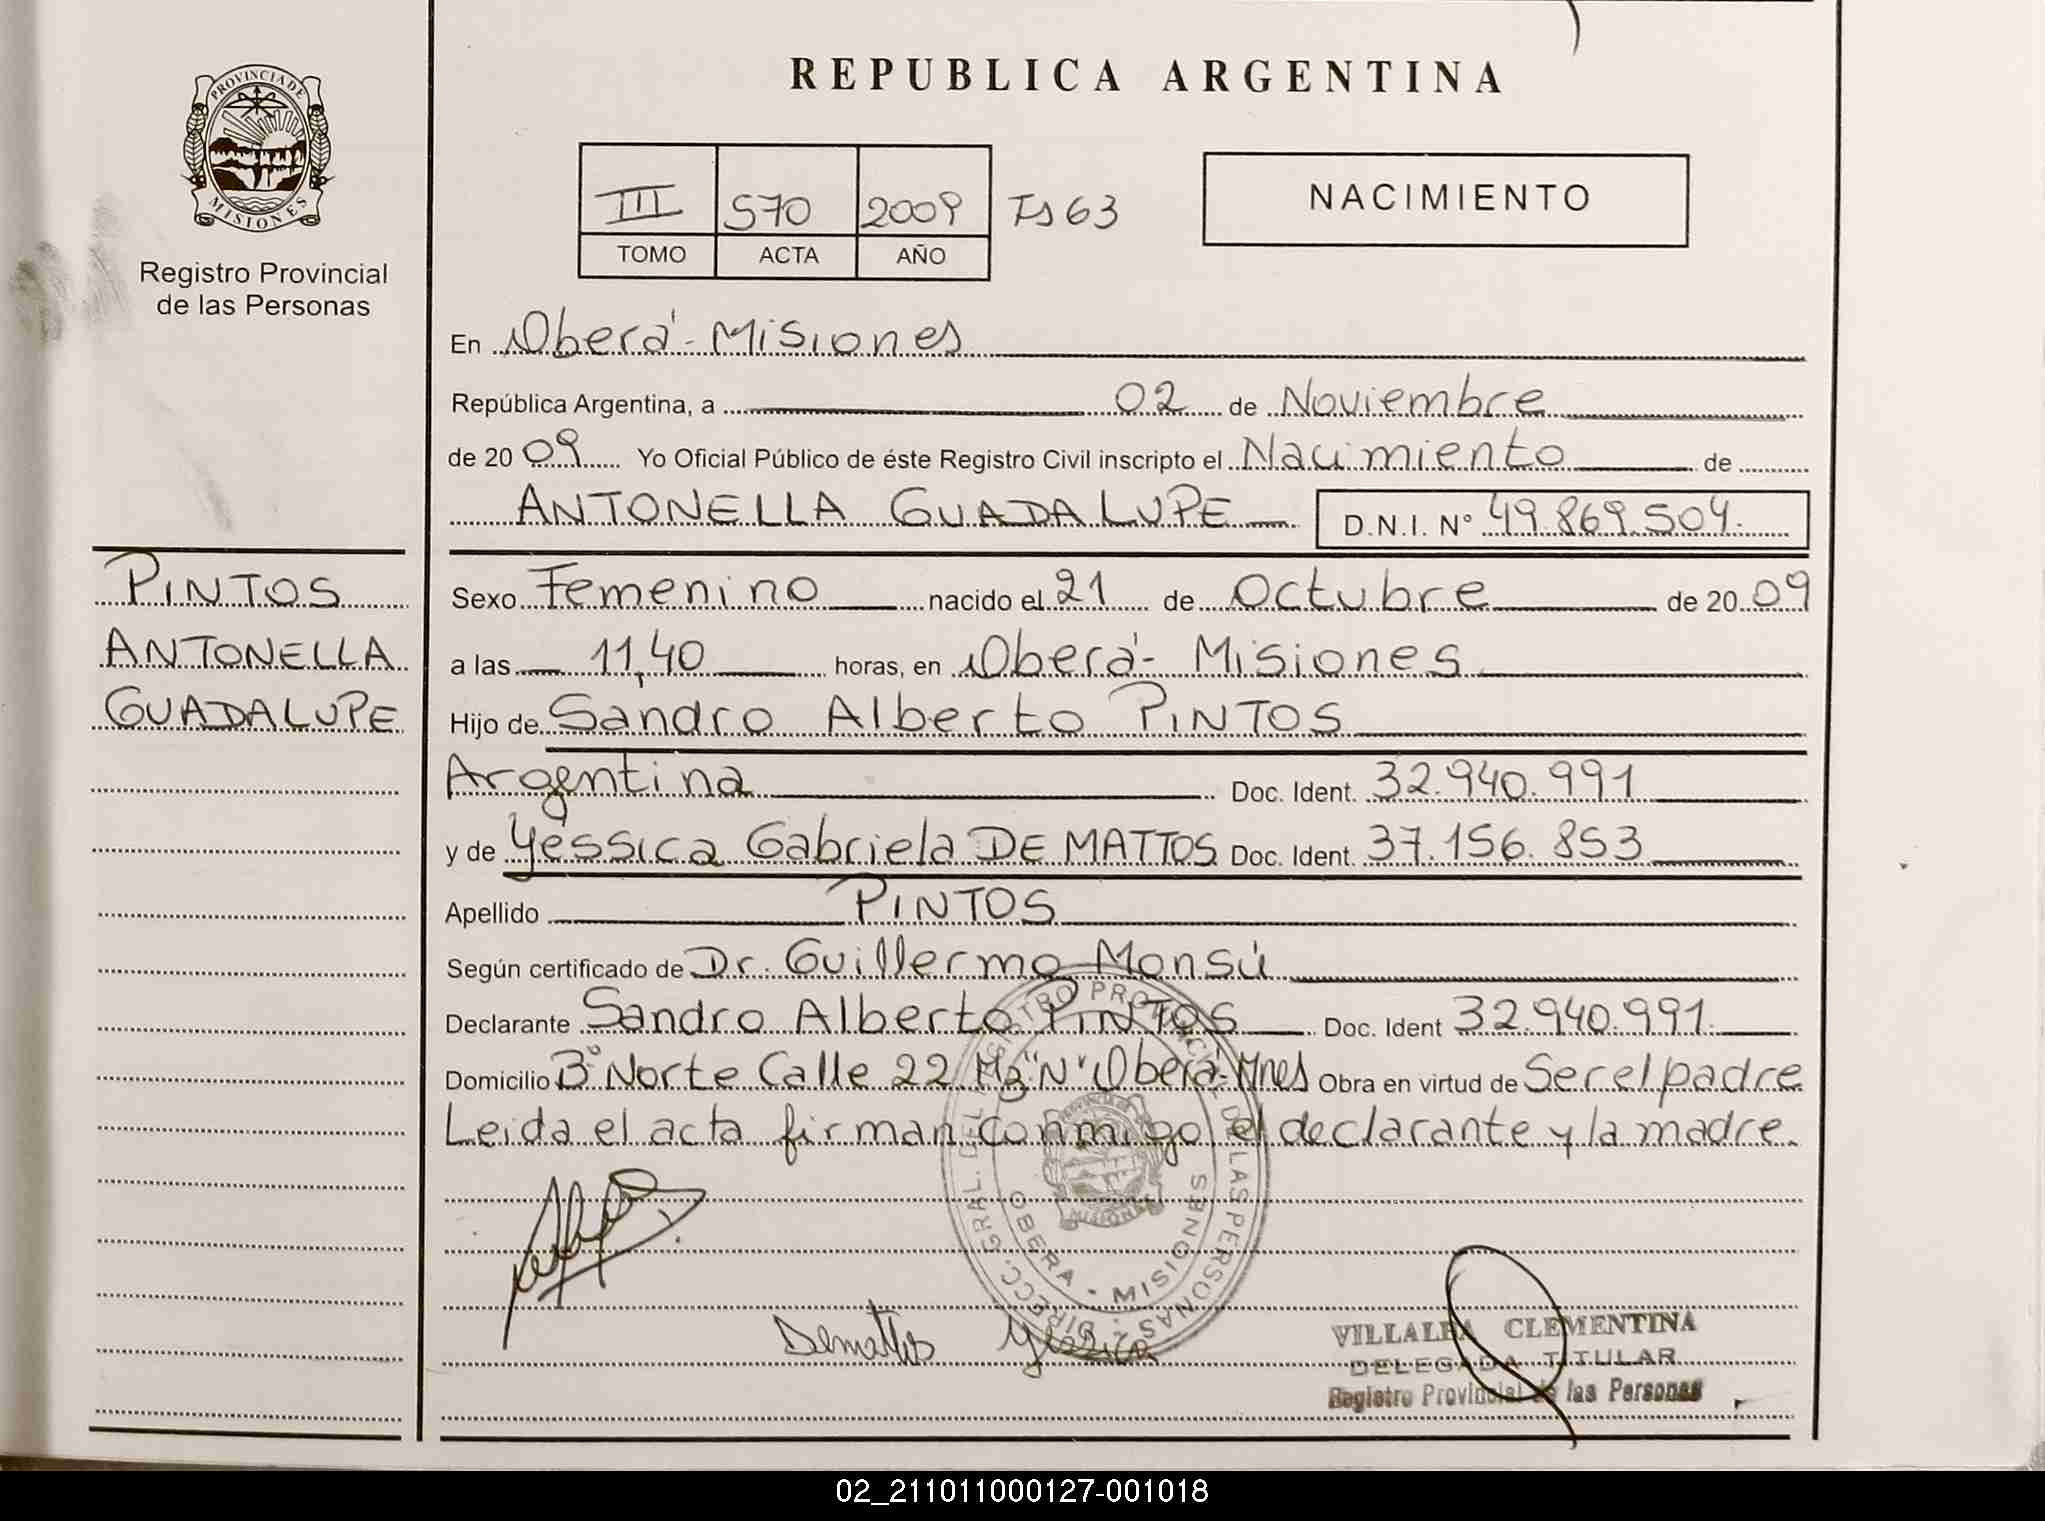 REPUBLICA ARGENTINA
PROVINCIA DE
MISIONES
Registro Provincial
de las Personas
III 570 2009 Fs 63
TOMO ACTA AÑO
NACIMIENTO
En Oberá - Misiones
República Argentina, a 02 de Noviembre
de 2009 Yo Oficial Público de éste Registro Civil inscripto el Nacimiento de
ANTONELLA GUADALUPE D.N.I. N° 49.869.504.
PINTOS
ANTONELLA
GUADALUPE
Sexo Femenino nacido el 21 de Octubre de 2009
a las 11,40 horas, en Oberá - Misiones
Hijo de Sandro Alberto PINTOS
Argentina Doc. Ident. 32.940.991
y de Yéssica Gabriela DE MATTOS Doc. Ident. 37.156.853
Apellido PINTOS
Según certificado de Dr. Guillermo Monsú
Declarante Sandro Alberto PINTOS Doc. Ident 32.940.991.
Domicilio B° Norte Calle 22 Mz "N" Oberá - Mnes Obra en virtud de Ser el padre
Leida el acta firman conmigo el declarante y la madre.
DIRECC. GRAL. DEL REGISTRO PROVINCIAL DE LAS PERSONAS
OBERA - MISIONES
MISIONES
Demattos Yessica
VILLALBA CLEMENTINA
DELEGADA TITULAR
Registro Provincial de las Personas
02_211011000127-001018